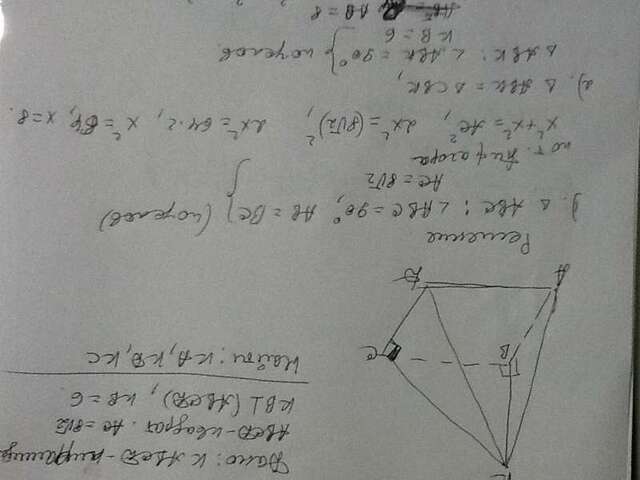 Дано: KABCD - пирамида
ABCD - квадрат. AC = 8√2
KB ⊥ (ABCD), KB = 6
Найти: KA, KD, KC
K
B
C
A
D
Решение
1). Δ ABC: ∠ABC = 90°, AB = BC } (по услов)
AC = 8√2
по т. Пифагора
x² + x² = AC², 2x² = (8√2)², 2x² = 64·2, x² = 64, x = 8.
2). Δ ABK = Δ CBK,
Δ ABK: ∠ABK = 90° } по услов.
KB = 6
AB = 8